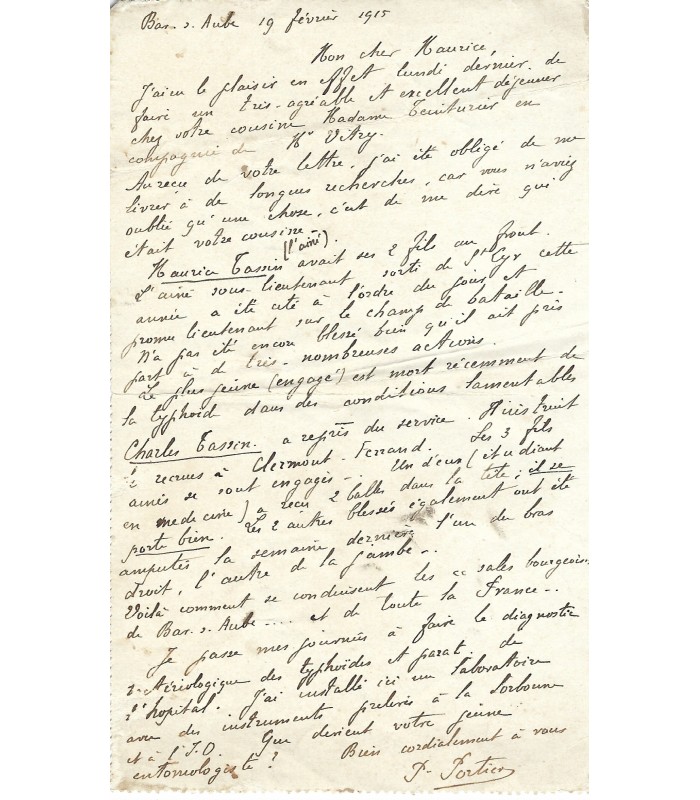 Bar. s. Aube 19 février 1915
Mon cher Maurice,
J'ai eu le plaisir en effet lundi dernier de
faire un très-agréable et excellent déjeuner
chez votre cousine Madame Teinturier en
compagnie de Mr Vitry.
Au reçu de votre lettre, j'ai été obligé de me
livrer à de longues recherches, car vous n'aviez
oublié qu'une chose, c'est de me dire qui
était votre cousine.
(l'aîné)
Maurice Tassin avait ses 2 fils au front.
L'aîné sous-lieutenant sorti de St Cyr cette
année a été cité à l'ordre du jour et
promu lieutenant sur le champ de bataille.
N'a pas été encore blessé bien qu'il ait pris
part à de très-nombreuses actions.
Le plus jeune (engagé) est mort récemment de
la typhoïd dans des conditions lamentables
Charles Tassin. a repris du service. Il instruit
recrues à Clermont-Ferrand. Les 3 fils
aînés se sont engagés -. Un d'eux (étudiant
en medecine) a reçu 2 balles dans la tête; il se
porte bien. Les 2 autres blessés également ont été
amputés la semaine dernière l'un du bras
droit, l'autre de la jambe -..
Voilà comment se conduisent les "sales bourgeois
de Bar. s. Aube .... et de toute la France -..
Je passe mes journées à faire le diagnostic
bactériologique des typhoïdes et parat. de
l'hopital. J'ai installé ici un laboratoire
avec des instruments prélevés à la Sorbonne
et à l'I.O. Que devient votre jeune
entomologiste ? Bien cordialement à vous
P. Portier